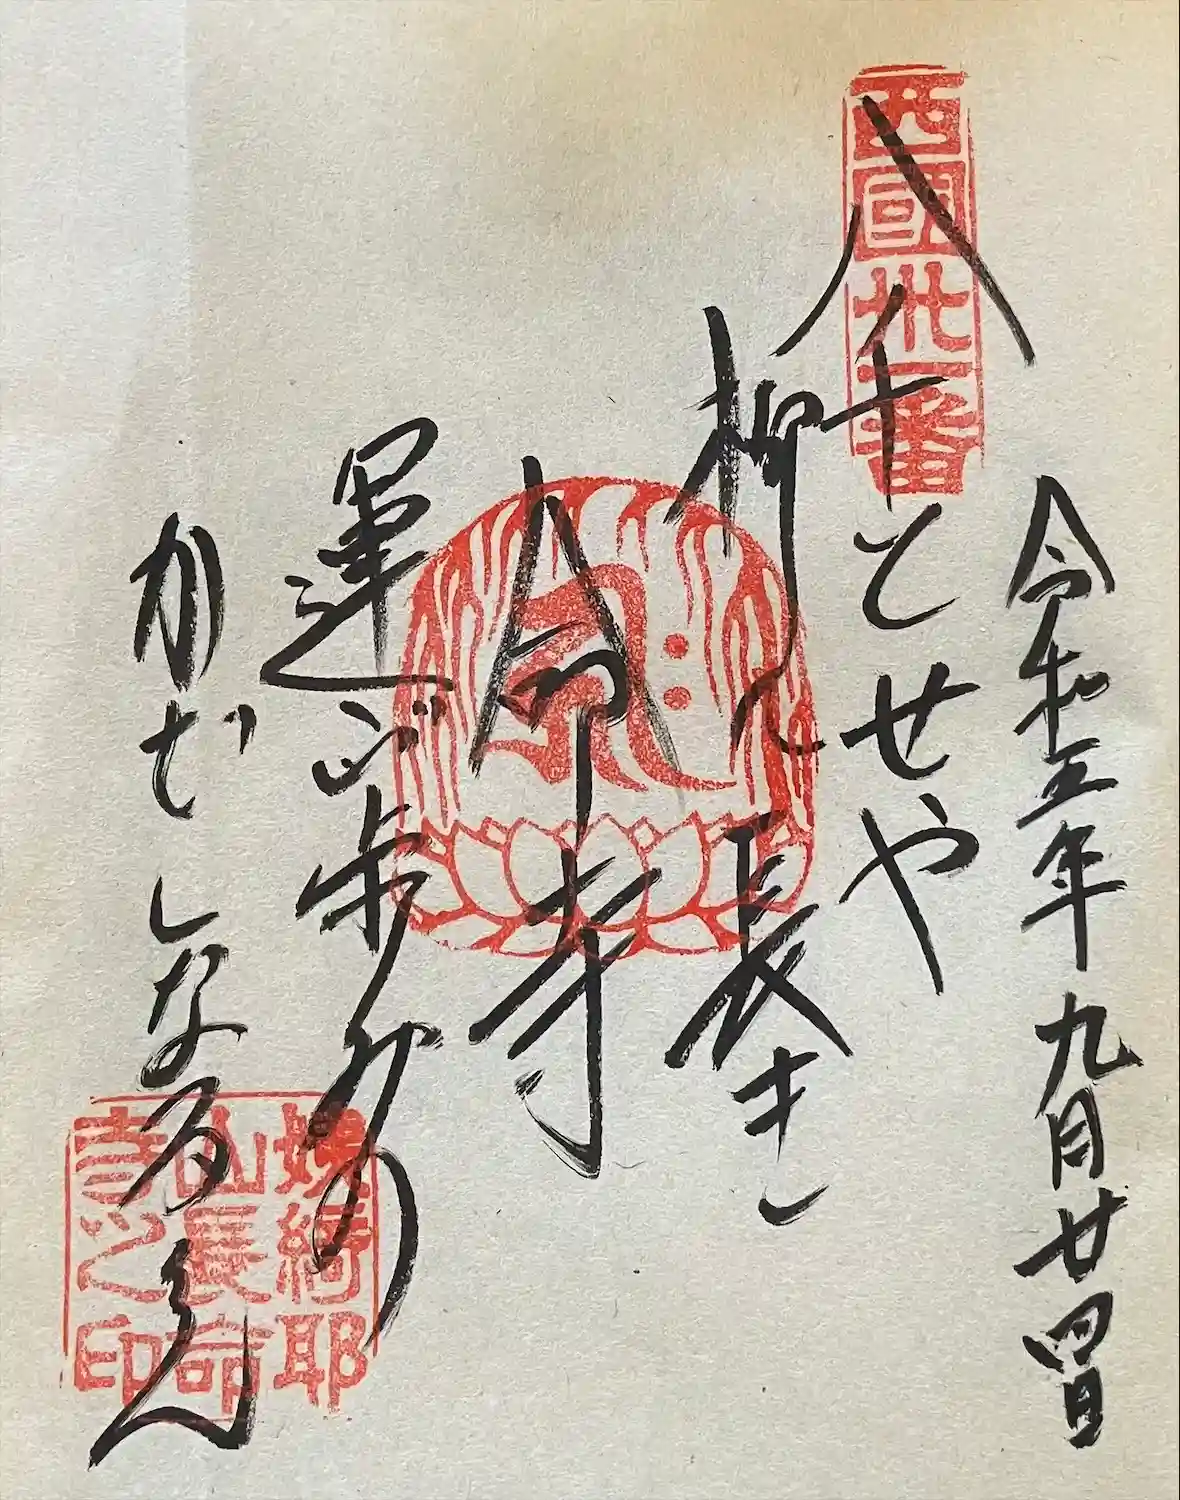 西國卅一番
令和五年九月廿四日
八千とせや
柳に長き
命寺
運ぶ歩みの
かざしなるらん
姨綺耶
山長命
寺之印